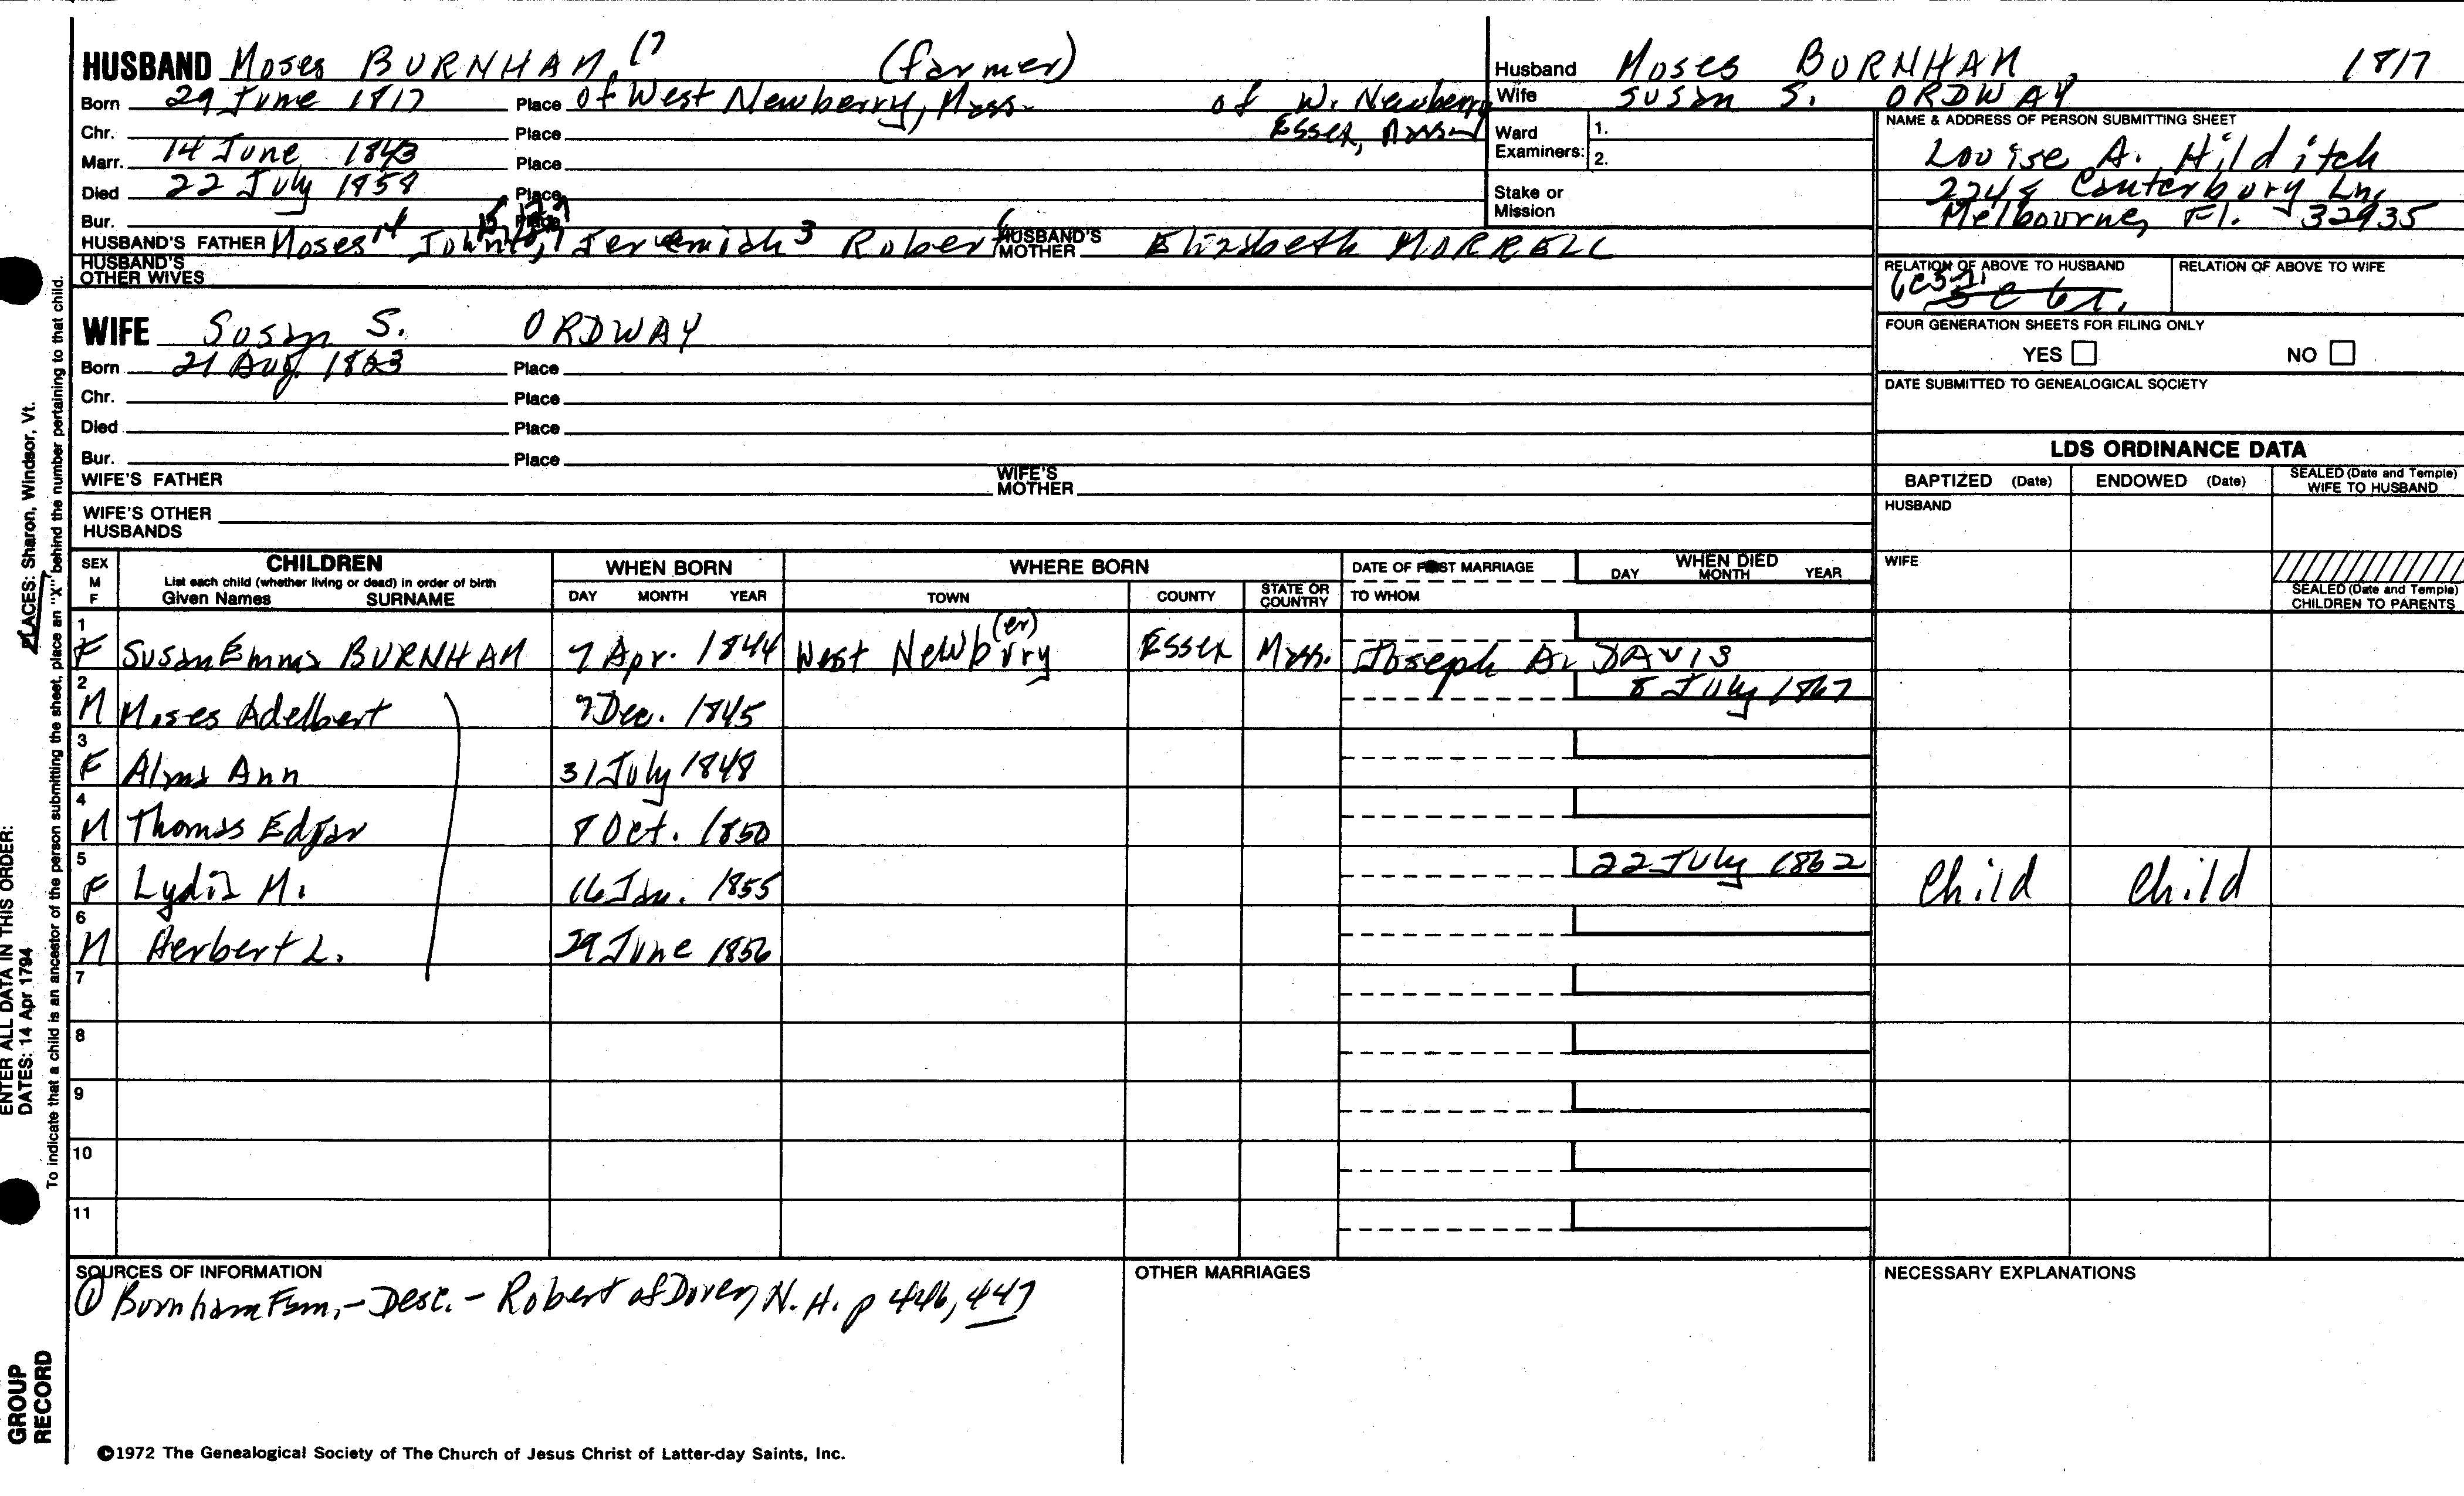 HUSBAND Moses BURNHAM, (farmer)
Born 29 June 1817 Place of West Newberry, Mass. of W. Newberry
Chr. Place Essex, Mass
Marr. 14 June 1843 Place
Died 22 July 1858 Place
Bur. Place
HUSBAND'S FATHER Moses John Jeremiah 3 Robert HUSBAND'S MOTHER Elizabeth MORRELL
HUSBAND'S OTHER WIVES
WIFE Susan S. ORDWAY
Born 21 Aug. 1823 Place
Chr. Place
Died Place
Bur. Place
WIFE'S FATHER WIFE'S MOTHER
WIFE'S OTHER HUSBANDS
Husband Moses BURNHAM, 1817
Wife SUSAN S. ORDWAY
Ward Examiners: 1.
2.
Stake or Mission
NAME & ADDRESS OF PERSON SUBMITTING SHEET
Louise A. Hilditch
2248 Canterbury Ln,
Melbourne, Fl. 32935
RELATION OF ABOVE TO HUSBAND RELATION OF ABOVE TO WIFE
FOUR GENERATION SHEETS FOR FILING ONLY
YES NO
DATE SUBMITTED TO GENEALOGICAL SOCIETY
LDS ORDINANCE DATA
BAPTIZED (Date) ENDOWED (Date) SEALED (Date and Temple) WIFE TO HUSBAND
HUSBAND
WIFE
SEALED (Date and Temple) CHILDREN TO PARENTS
SEX M F
CHILDREN
List each child (whether living or dead) in order of birth
Given Names SURNAME
WHEN BORN
DAY MONTH YEAR
WHERE BORN
TOWN COUNTY STATE OR COUNTRY
DATE OF FIRST MARRIAGE
TO WHOM
WHEN DIED
DAY MONTH YEAR
1 F Susan Emma BURNHAM 7 Apr. 1844 West Newbury (er) Essex Mass. Joseph A. DAVIS
2 M Moses Adelbert 9 Dec. 1845 8 July 1867
3 F Alma Ann 31 July 1848
4 M Thomas Edgar 8 Oct. 1850
5 F Lydia M. 16 Jan. 1855 22 July 1862 Child Child
6 M Herbert L. 29 June 1856
7
8
9
10
11
SOURCES OF INFORMATION
① Burnham Fam. - Desc. - Robert of Dover, N.H. p 446, 447
OTHER MARRIAGES
NECESSARY EXPLANATIONS
©1972 The Genealogical Society of The Church of Jesus Christ of Latter-day Saints, Inc.
ENTER ALL DATA IN THIS ORDER:
DATES: 14 Apr 1794
PLACES: Sharon, Windsor, Vt.
To indicate that a child is an ancestor of the person submitting the sheet, place an "X" behind the number pertaining to that child.
GROUP
RECORD